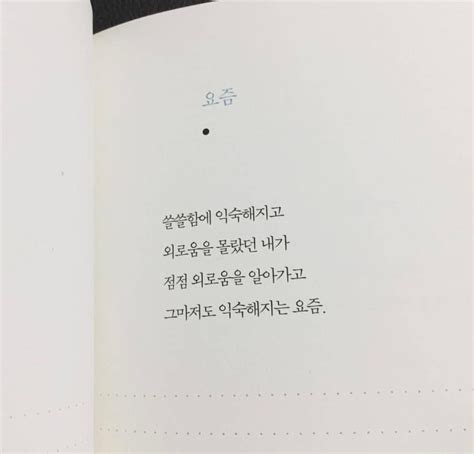 요즘
쓸쓸함에 익숙해지고
외로움을 몰랐던 내가
점점 외로움을 알아가고
그마저도 익숙해지는 요즘.